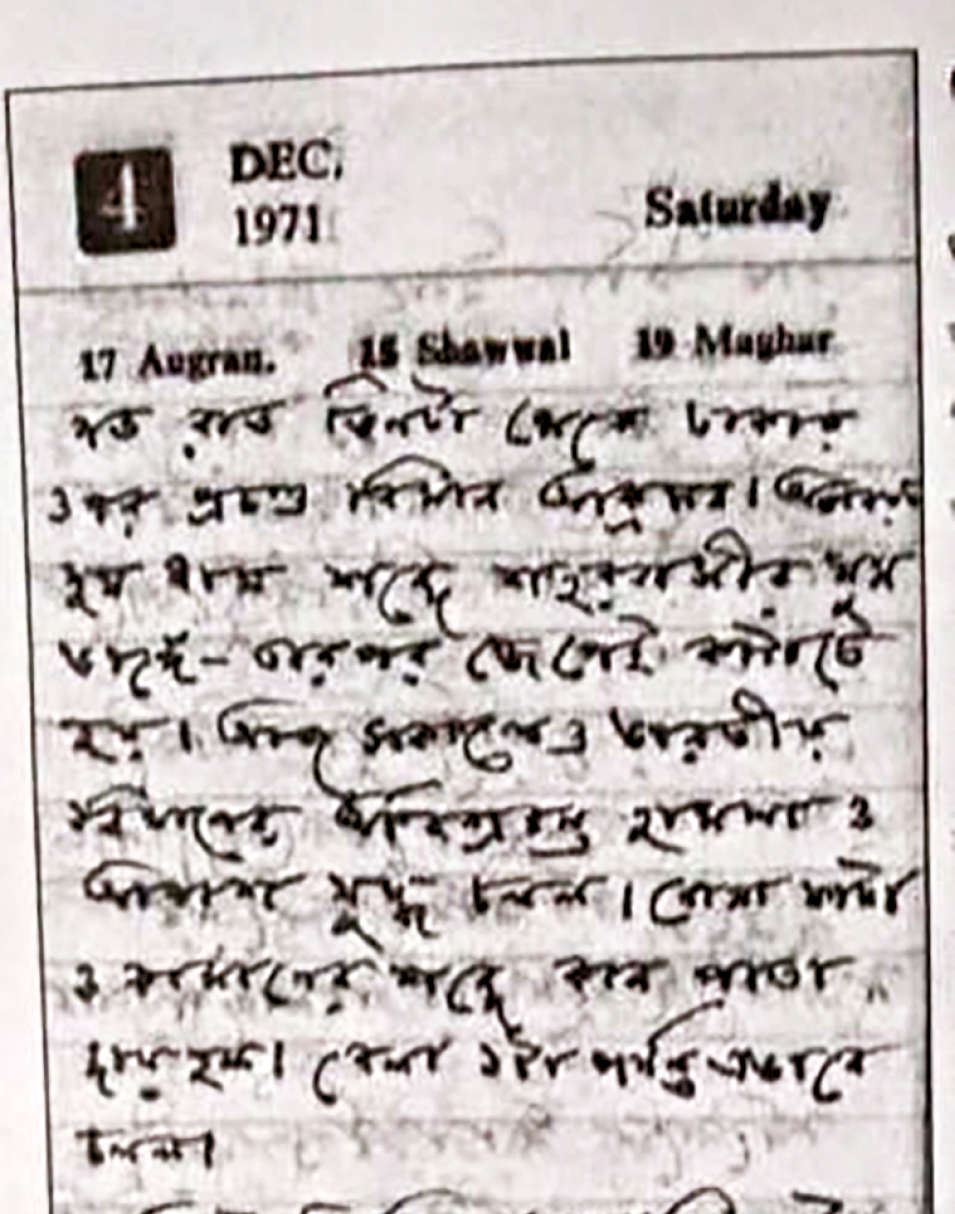 4
DEC,
1971
Saturday
17 Augran. 15 Shawwal 19 Maghar
গত রাত তিনটা থেকে ঢাকার
ওপর প্রচণ্ড বিমান আক্রমন।
দুম দাম শব্দে শহরবাসীর ঘুম
ভাঙ্গে - তারপর জেগেই কাটাতে
হয়। আজ সকালেও ভারতীয়
বিমানের অবিশ্রান্ত হামলা ও
আকাশ যুদ্ধ চলল। বোমা ফাটা
ও কামানের শব্দে কান পাতা
দায় হল। বেলা ১টা পর্যন্ত এভাবে
চলল।